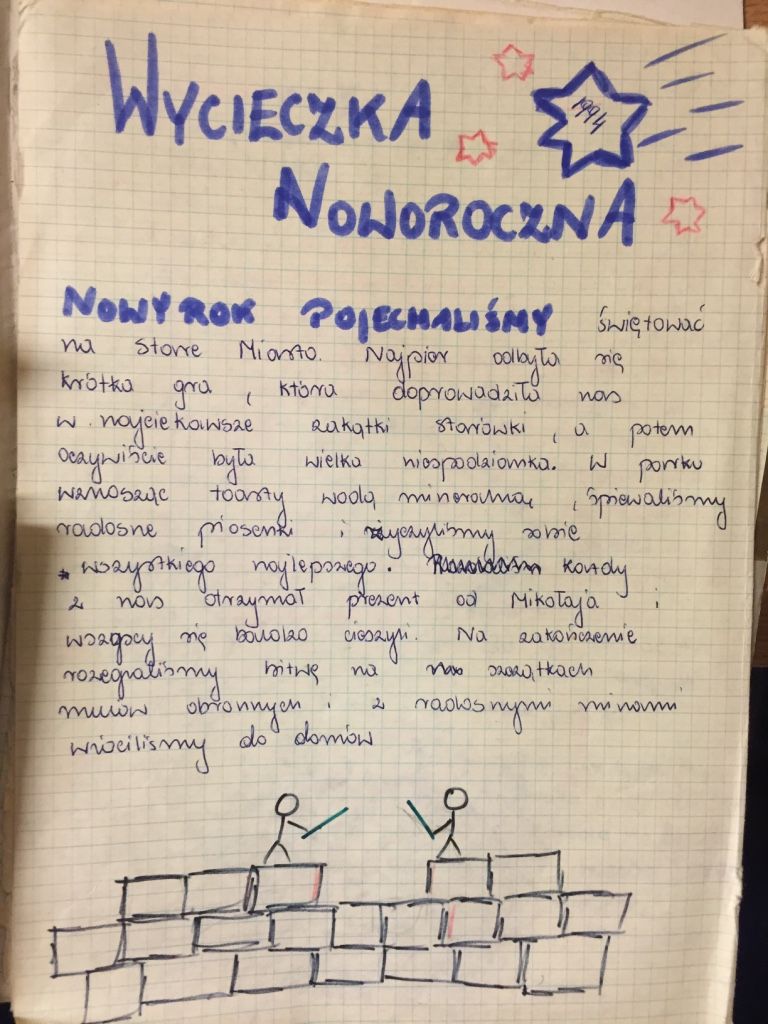 WYCIECZKA
1994
NOWOROCZNA
NOWY ROK POJECHALIŚMY świętować
na Stare Miasto. Najpier odbyła się
krótka gra, która doprowadziła nas
w najciekawsze zakątki starówki, a potem
oczywiście była wielka niespodzianka. W parku
wznosząc toasty wodą mineralną, śpiewaliśmy
radosne piosenki i życzyliśmy sobie
wszystkiego najlepszego. Każdy
z nas otrzymał prezent od Mikołaja i
wszyscy się bardzo cieszyli. Na zakończenie
rozegraliśmy bitwę na szczątkach
murów obronnych i z radosnymi minami
wróciliśmy do domów